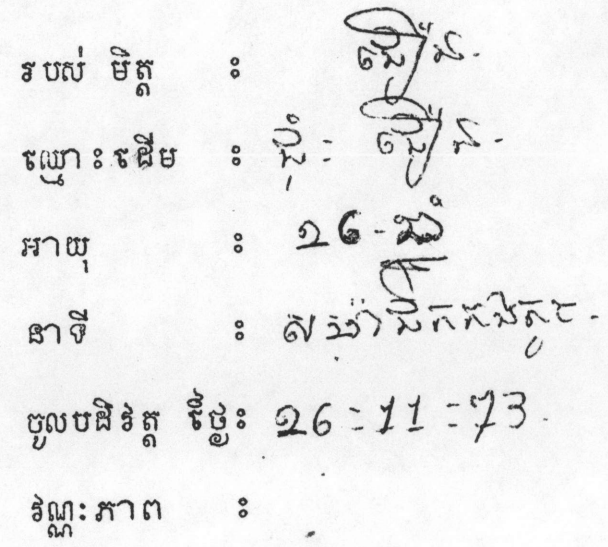 របស់ មិត្ត :
ឈ្មោះដើម :
អាយុ : ១៦-ឆ្នាំ
នាទី : សមាជិកកងតូច.
ចូលបដិវត្ត ថ្ងៃ: ១6-11-73.
វណ្ណៈភាព :